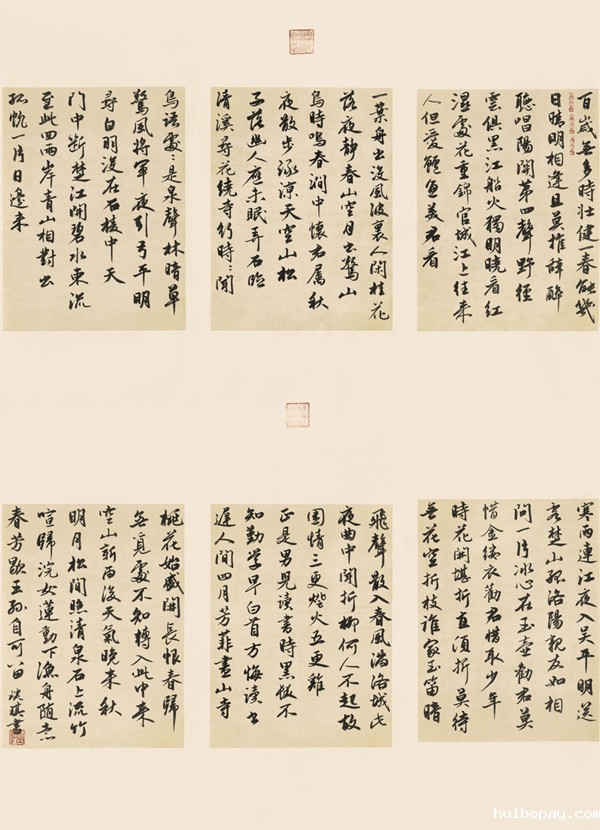 百歲無多時壮健一春能幾
日晴明相逢且莫推辭醉
聽唱陽關第四聲野徑
雲俱黑江船火獨明曉看紅
濕處花重錦官城江上往来
人但愛鱸魚美君看
一葉舟出没風波裏人閑桂花
落夜静春山空月出驚山
鳥時鳴春澗中懷君屬秋
夜散步詠涼天空山松
子落幽人應未眠弄石臨
清溪尋花繞寺行時〻聞
鳥語處〻是泉聲林暗草
驚風將軍夜引弓平明
尋白羽没在石棱中天
門中斷楚江開碧水東流
至此回兩岸青山相對出
孤帆一片日邊来
寒雨連江夜入吴平明送
客楚山孤洛陽親友如相
問一片冰心在玉壺勸君莫
惜金縷衣勸君惜取少年
時花開堪折直須折莫待
無花空折枝誰家玉笛暗
飛聲散入春風满洛城此
夜曲中聞折柳何人不起故
園情三更燈火五更雞
正是男兒讀書時黑髮不
知勤學早白首方悔读书
遲人間四月芳菲盡山寺
桃花始盛開長恨春歸
無覓處不知轉入此中来
空山新雨後天氣晚来秋
明月松間照清泉石上流竹
喧歸浣女蓮動下漁舟随意
春芳歇王孫自可留 琪書
huibopay.com